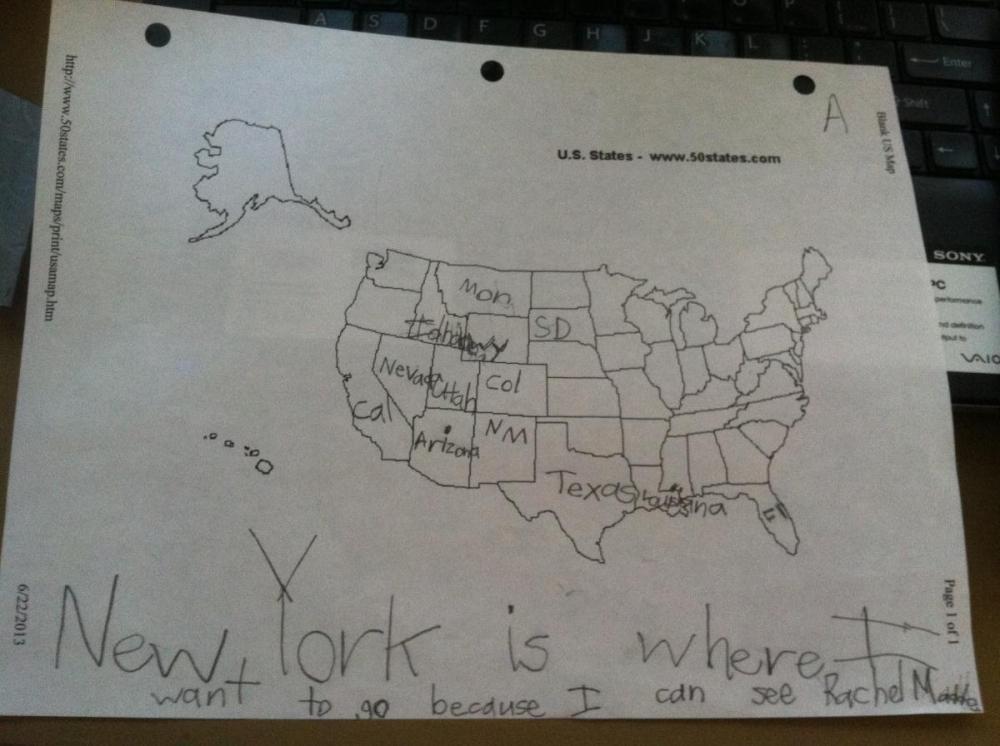 A S D F G H J K L
Enter
Shift
A
Blank US Map
http://www.50states.com/maps/print/usamap.htm
U.S. States - www.50states.com
SONY
PC
performance
nd definition
VAIO
Mon
Idaho
Wy
SD
Nevada
Utah
Col
Cal
Arizona
NM
Texas
Louisiana
6/22/2013
Page 1 of 1
New York is where I
want to go because I can see Rachel